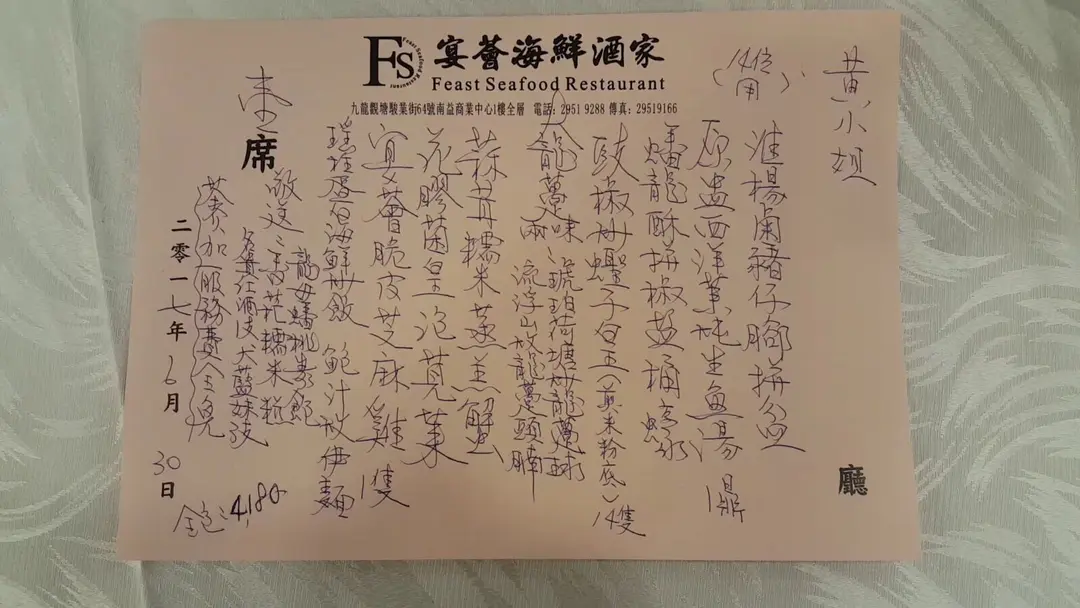 FS
Feast Seafood Restaurant
宴薈海鮮酒家
Feast Seafood Restaurant
九龍觀塘駿業街64號南益商業中心1樓全層 電話：2951 9288 傳真：29519166
黃小姐
(14位用)
廳
淮揚鹵豬仔腳拼盆
原盅西洋菜炖生魚湯 1鼎
蟠龍酥拼椒鹽
豉椒炒蟶子皇 (煎米粉底) 14隻
大龍躉兩味
琥珀荷塘炒龍躉球
流浮山炆龍躉頭腩
蒜茸糯米蒸羔蟹
花膠菌皇浸莧菜
宴薈脆皮芝麻雞 1隻
瑤柱蛋白海鮮炒飯 鮑汁炆伊麵
席
敬送：
糯米糍
茶加服務費全免
二零一七年6月30日
全包：4,180